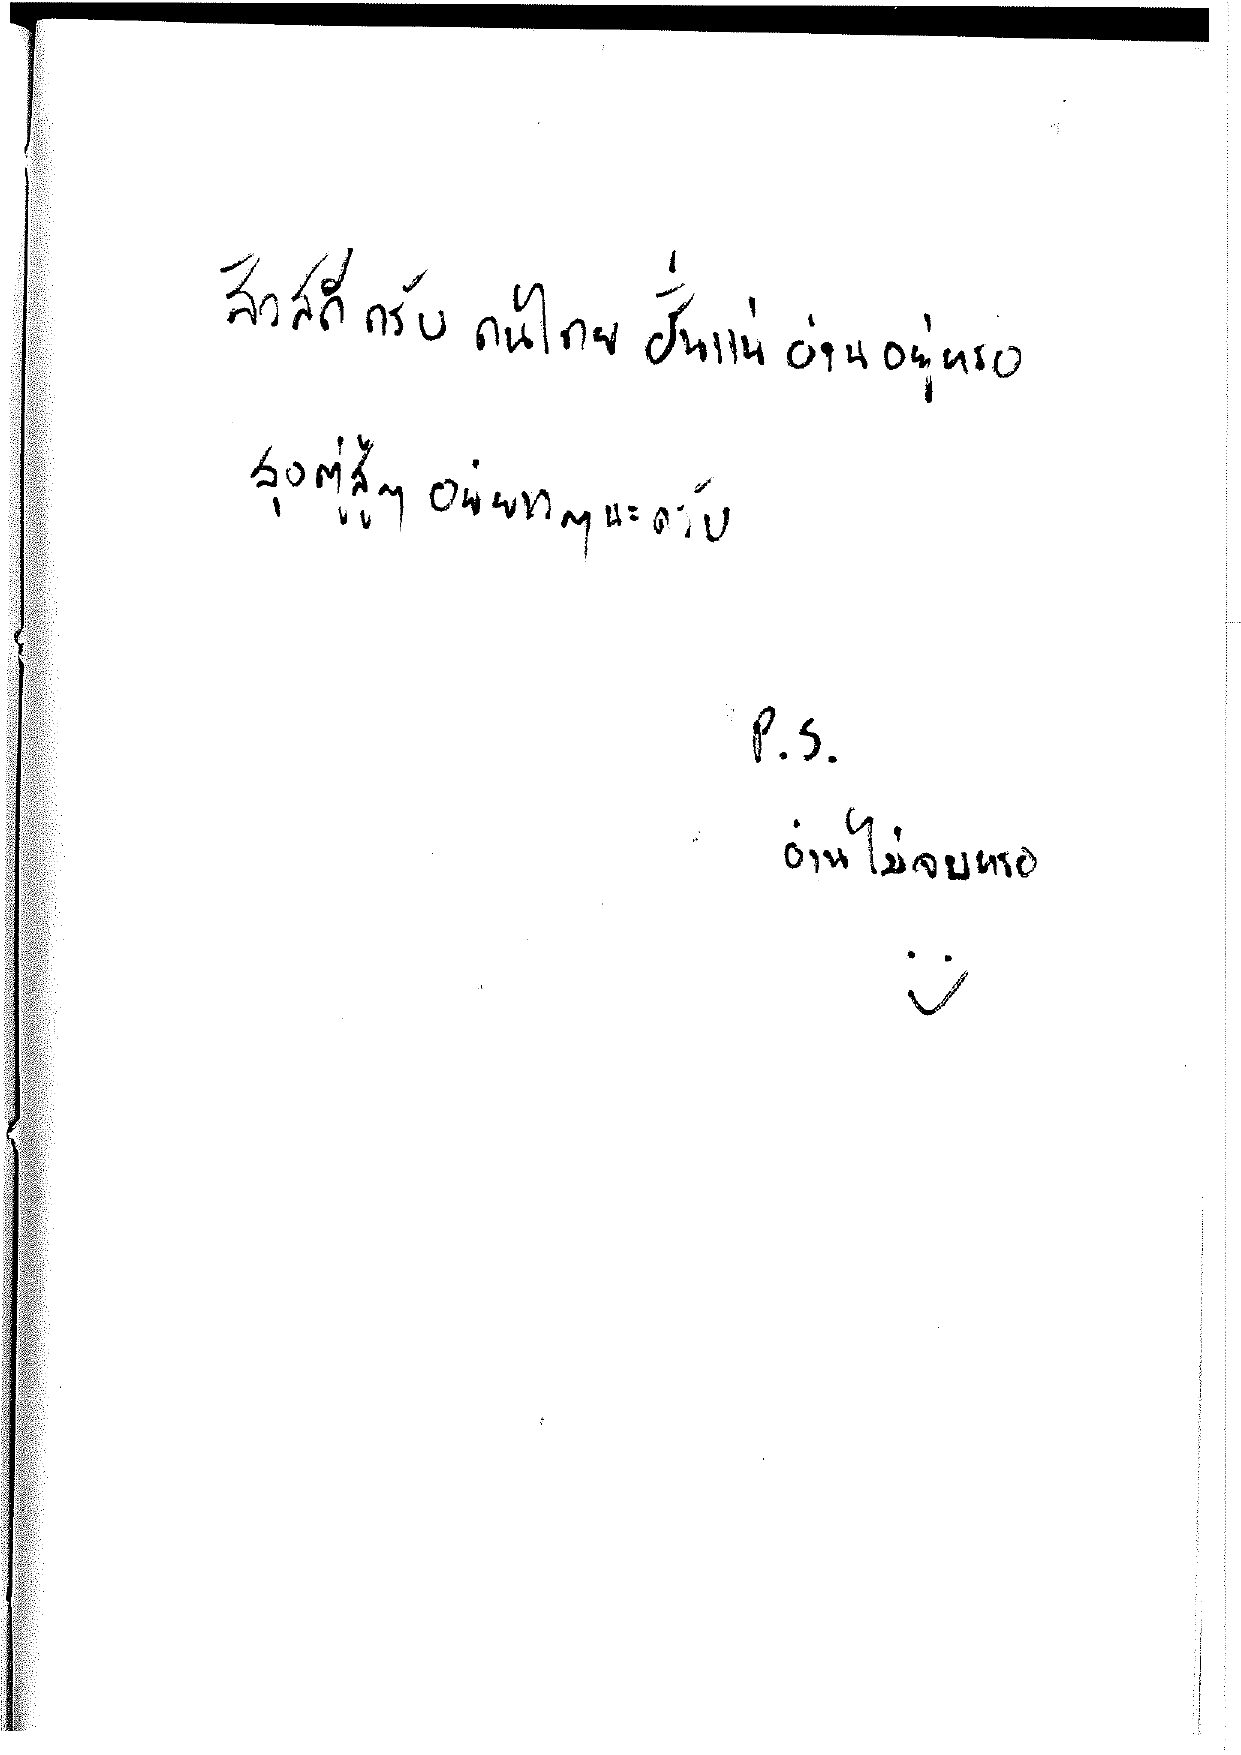 สัวสดี ครับ คนไทย ฮั่นแน่ อ่าน อยู่หรอ
ลุงตู่สู้ๆ อย่ายาๆนะครับ
P.S.
อ่านไม่จบหรอ